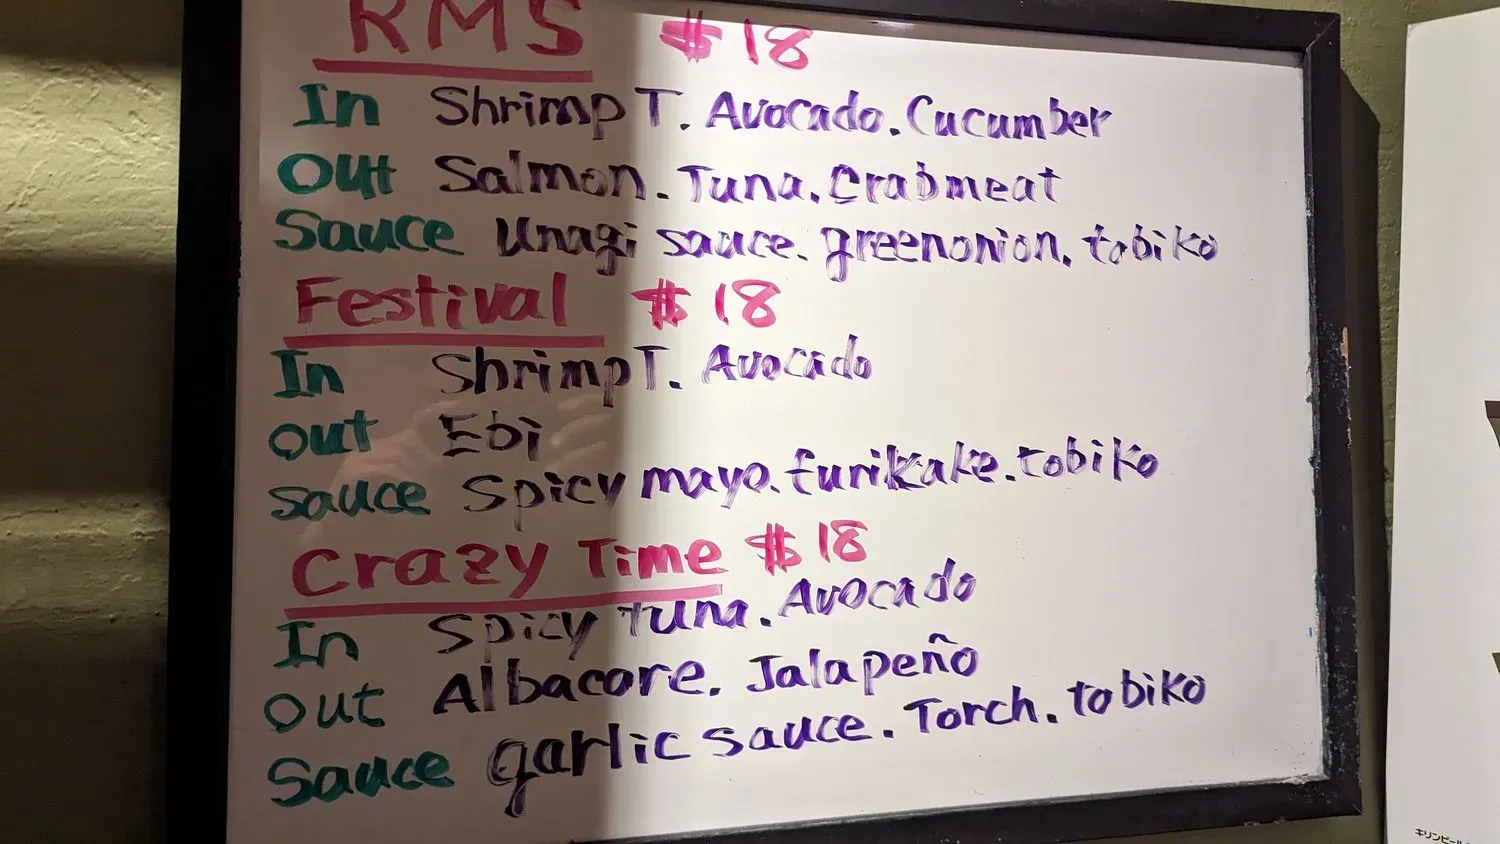 RMS $18
In Shrimp T. Avocado. Cucumber
Out Salmon. Tuna. Crabmeat
Sauce Unagi sauce. greenonion. tobiko
Festival $18
In Shrimp T. Avocado
Out Ebi
Sauce Spicy mayo. furikake. tobiko
Crazy Time $18
In Spicy Tuna. Avocado
Out Albacore. Jalapeño
Sauce garlic sauce. Torch. tobiko
キリンビール